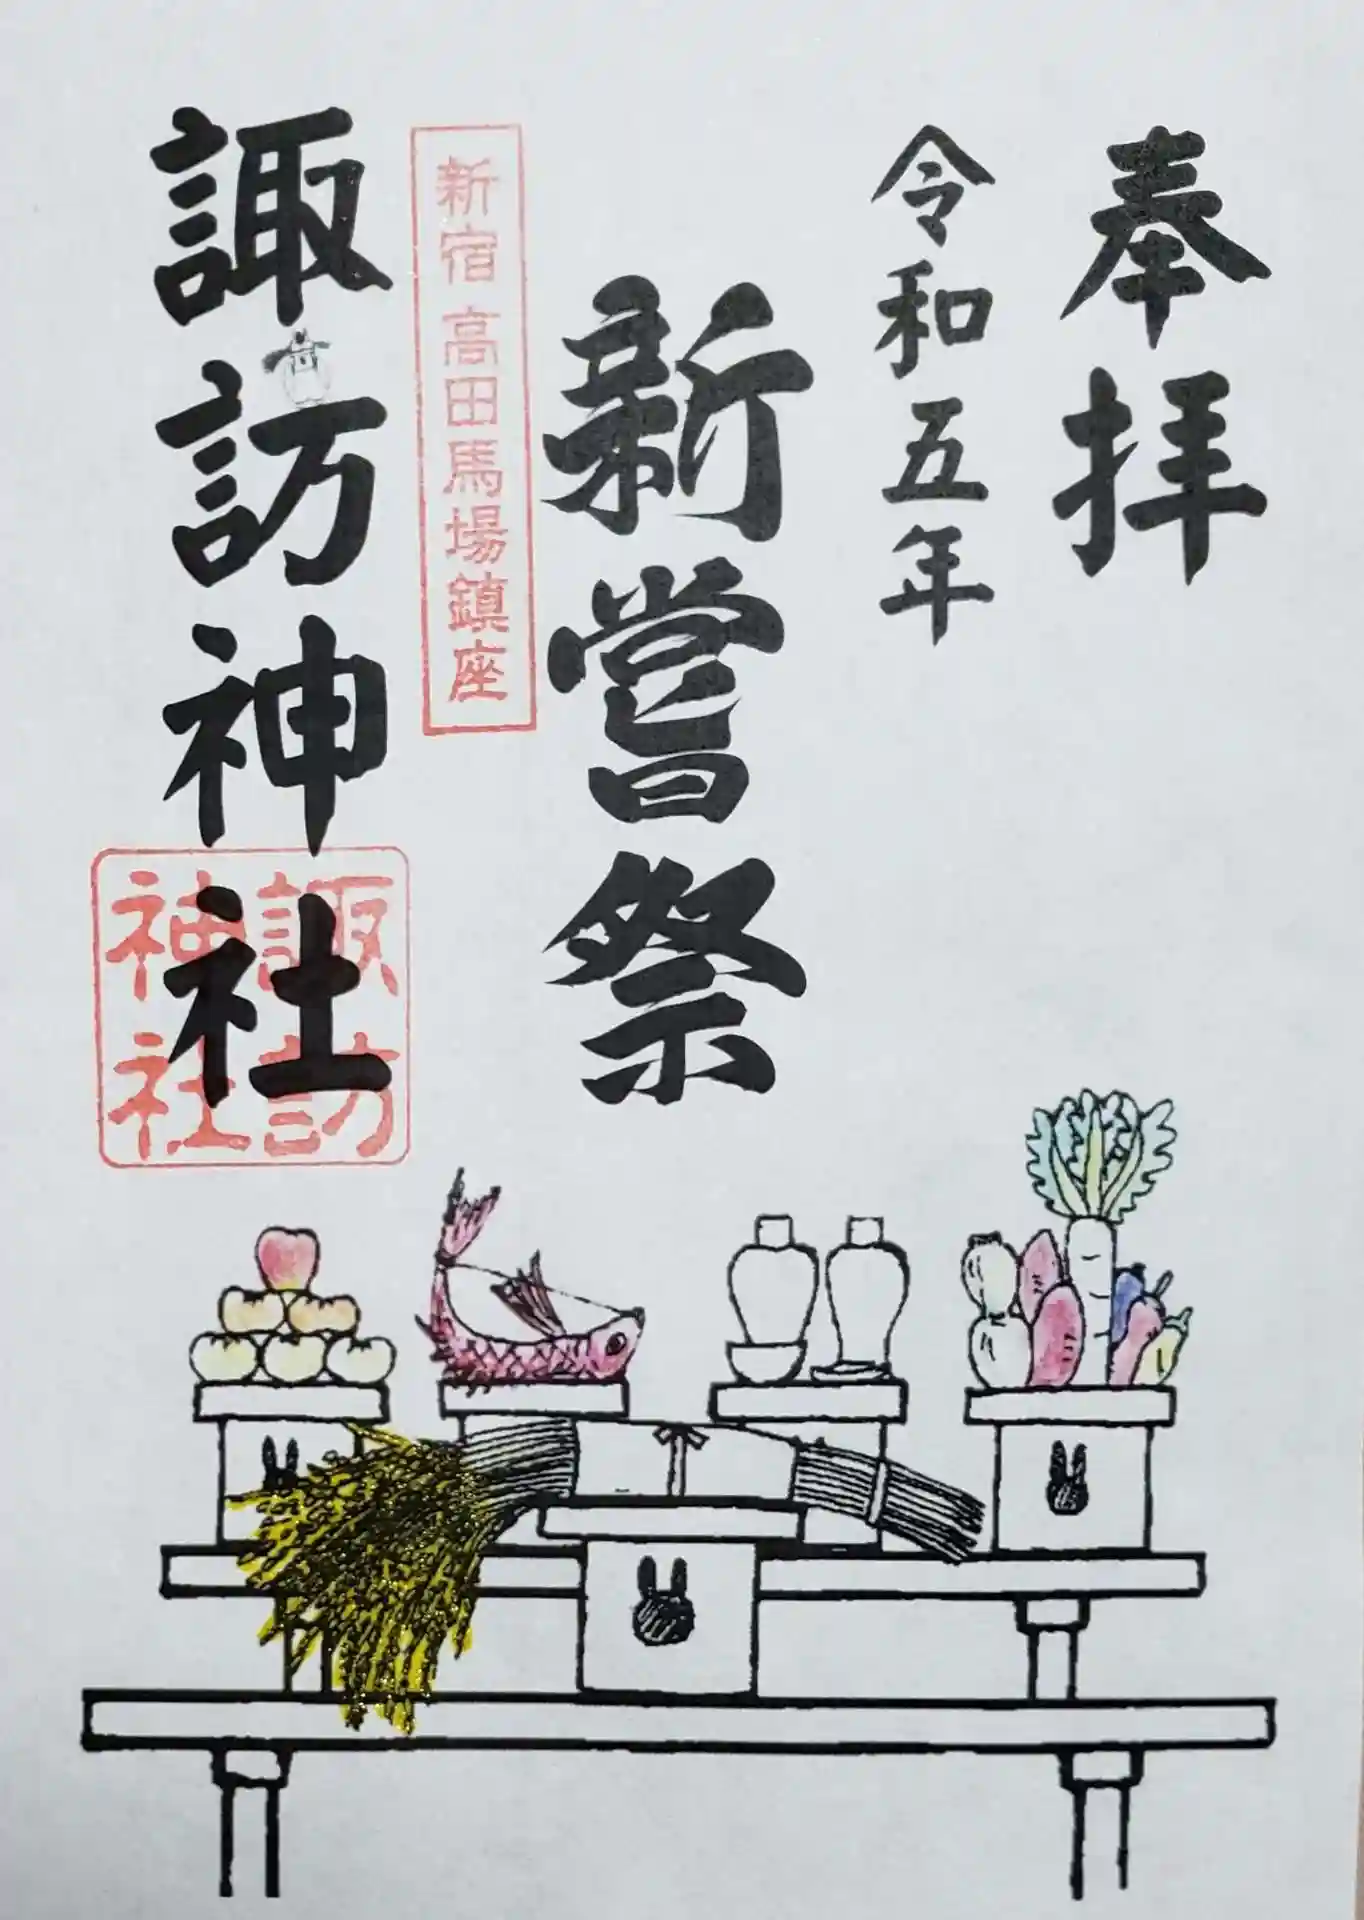 奉拝
令和五年
新嘗祭
新宿 高田馬場鎮座
諏訪神社
諏訪
神社